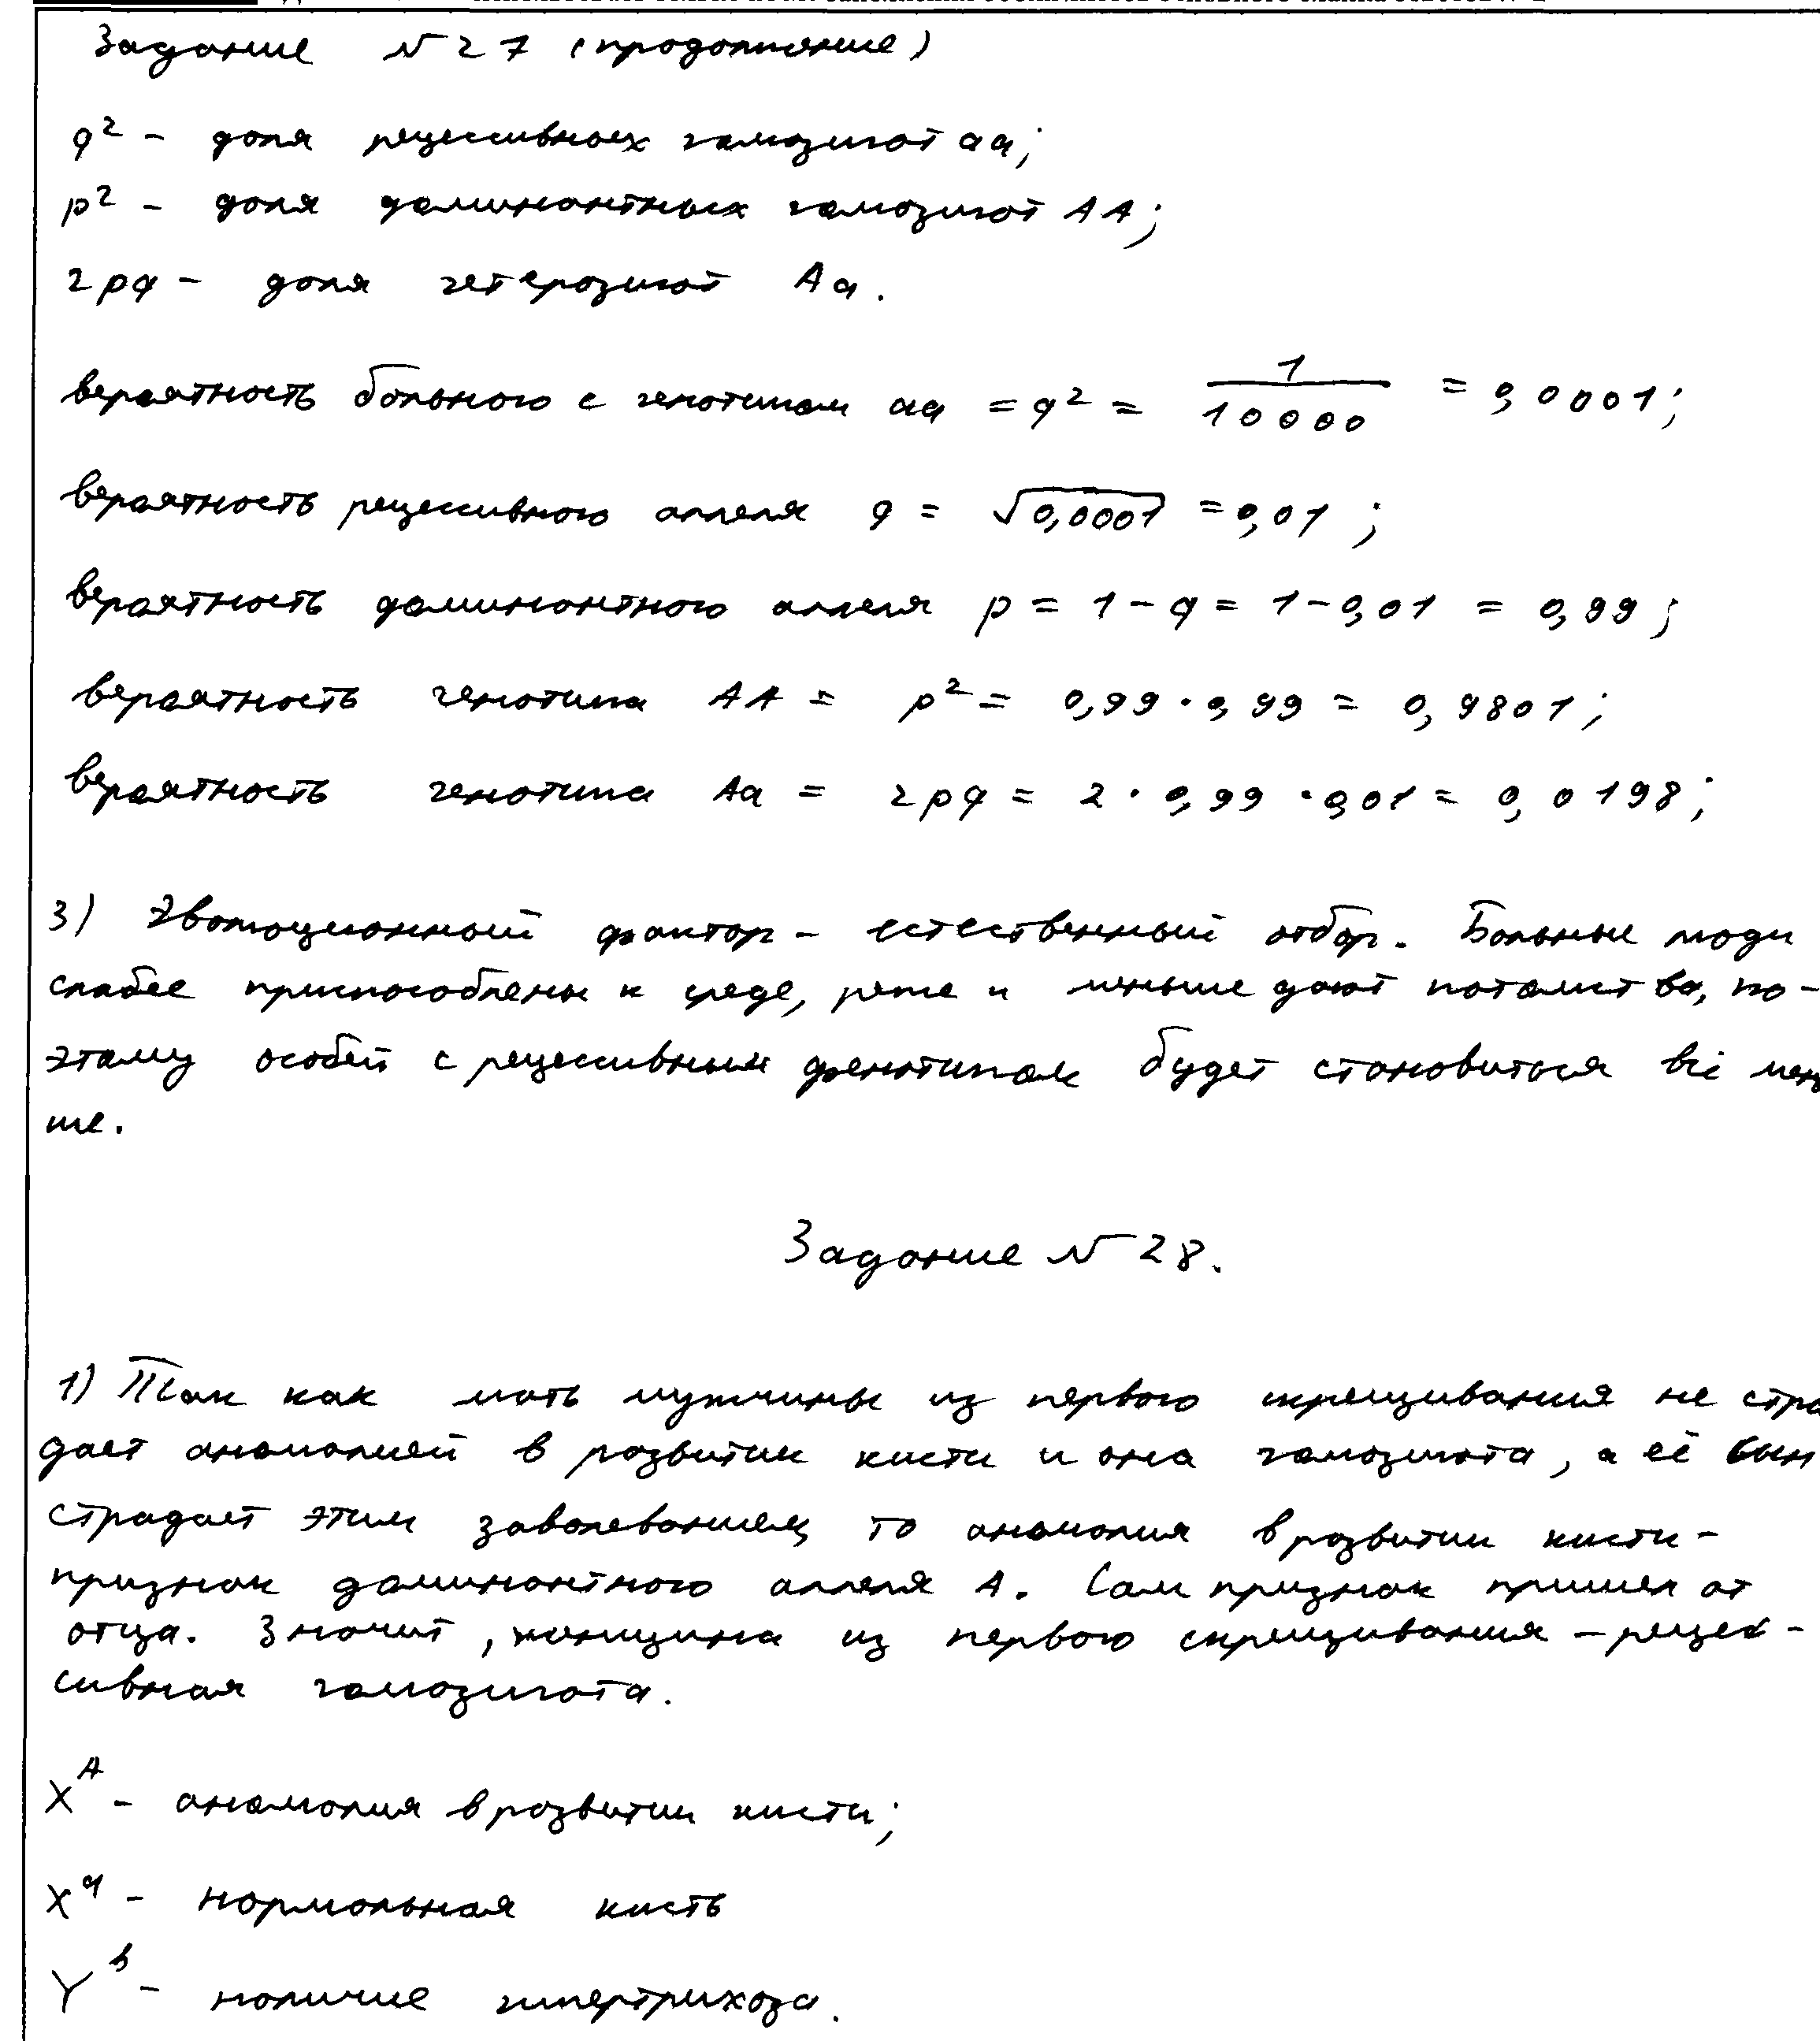 Задание №27 (продолжение)
q² - доля рецессивных гомозигот aa;
p² - доля доминантных гомозигот AA;
2pq - доля гетерозигот Aa.
вероятность больного с генотипом aa = q² = 1/10000 = 0,0001;
вероятность рецессивного аллеля q = √0,0001 = 0,01;
вероятность доминантного аллеля p = 1 - q = 1 - 0,01 = 0,99;
вероятность генотипа AA = p² = 0,99 · 0,99 = 0,9801;
вероятность генотипа Aa = 2pq = 2 · 0,99 · 0,01 = 0,0198;
3) Эволюционный фактор - естественный отбор. Больные люди
слабее приспособлены к среде, реже и меньше дают потомства, по-
этому особей с рецессивным фенотипом будет становиться всё мень
ше.
Задание №28.
1) Так как мать мужчины из первого скрещивания не стра
дает аномалией в развитии кисти и она гомозигота, а её сын
страдает этим заболеванием, то аномалия в развитии кисти -
признак доминантного аллеля А. Сам признак пришел от
отца. Значит, женщина из первого скрещивания - рецес-
сивная гомозигота.
Xᴬ - аномалия в развитии кисти;
Xᵃ - нормальная кисть
Yᵇ - наличие гипертрихоза.